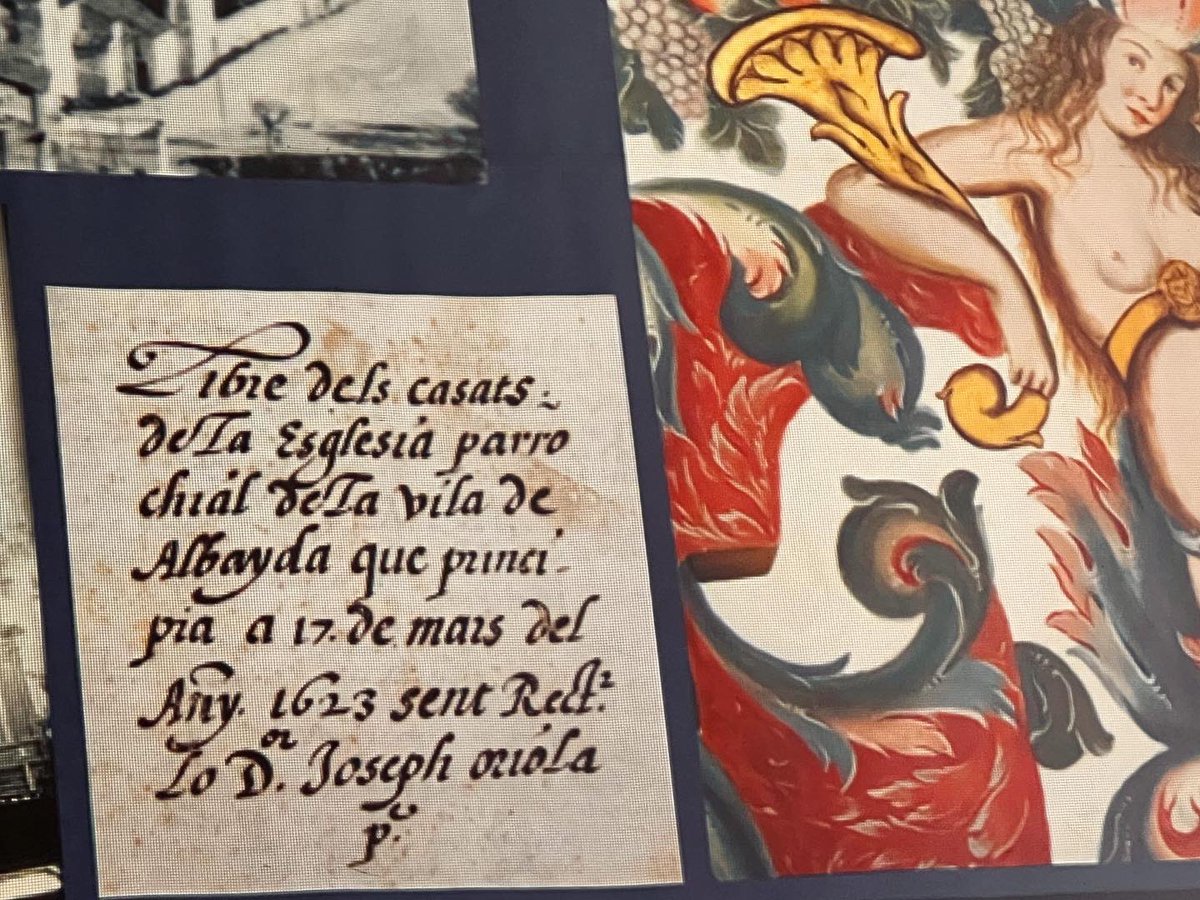 Libre dels casats
dela Esglesia parro
chial dela vila de
Albayda que princi-
pia a 17. de mars del
Añy. 1623 sent Rect.r
Lo D.or Joseph oriola
p.e